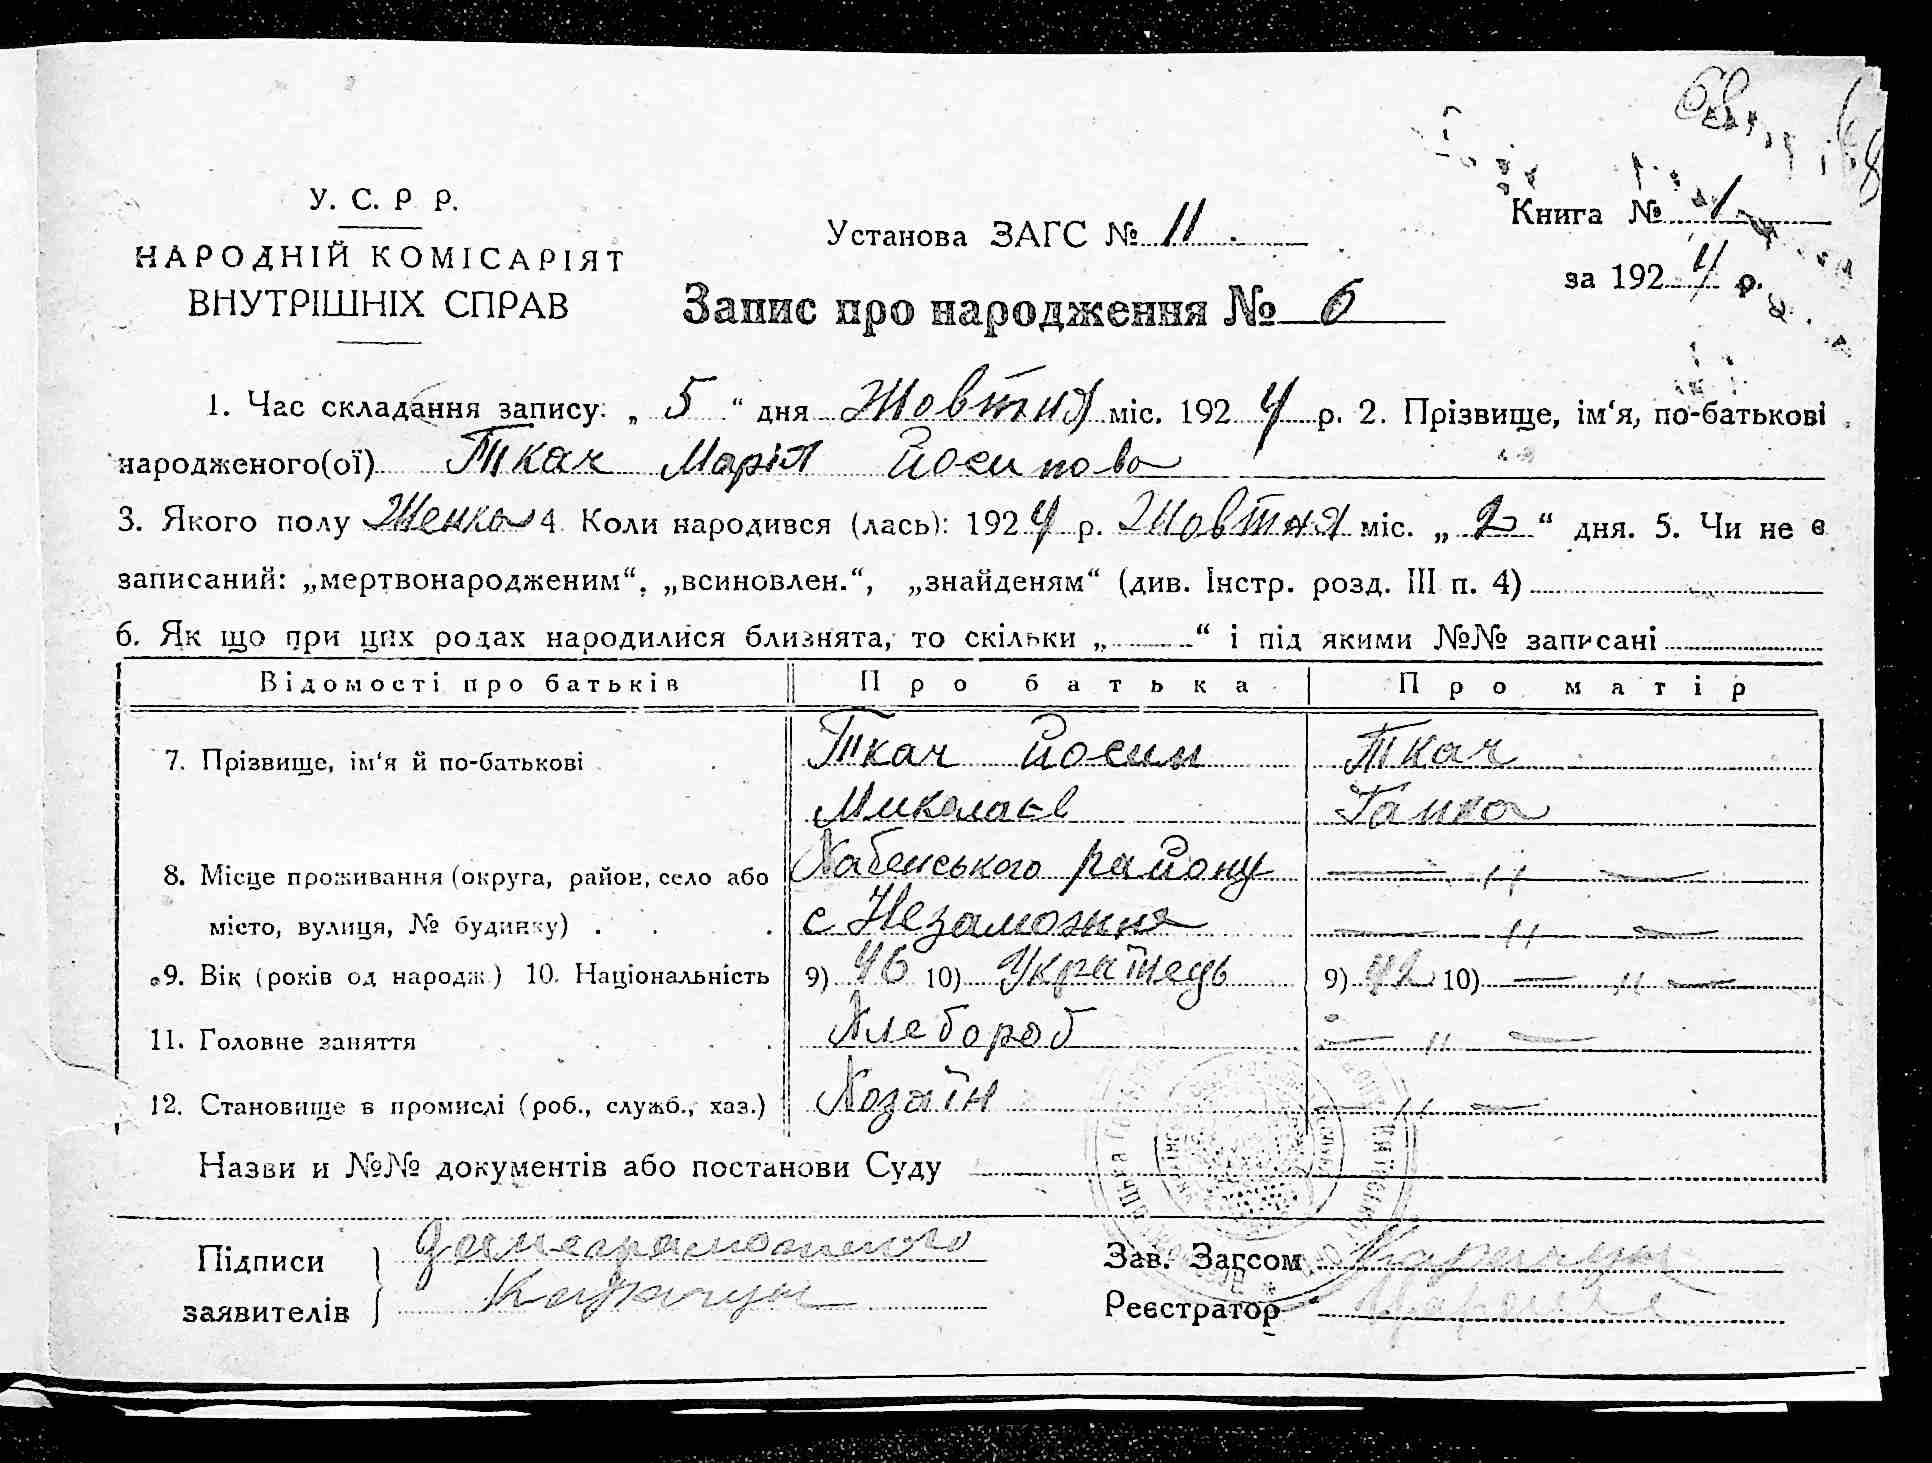 68
68
У. С. Р Р.
НАРОДНІЙ КОМІСАРІЯТ
ВНУТРІШНІХ СПРАВ
Установа ЗАГС № 11
Книга № 1
за 1924 р.
Запис про народження № 6
1. Час складання запису: „ 5 “ дня Жовтня міс. 1924 р. 2. Прізвище, ім‘я, по-батькові
народженого(ої) Ткач Марія Йосипова
3. Якого полу Женка 4 Коли народився (лась): 1924 р. Жовтня міс. „ 2 “ дня. 5. Чи не є
записаний: „мертвонародженим“, „всиновлен.“, „знайденям“ (див. Інстр. розд. III п. 4)
6. Як що при цих родах народилися близнята, то скільки „ “ і під якими №№ записані
Відомості про батьків Про батька Про матір
7. Прізвище, ім‘я й по-батькові Ткач Йосип Ткач
Миколаєв Ганка
8. Місце проживання (округа, район, село або Хабенського району — 〃 —
місто, вулиця, № будинку) . . . с Незаможня — 〃 —
9. Вік (років од народж.) 10. Національність 9) 46 10) Українець 9) 42 10) — 〃 —
11. Головне заняття Хлебороб — 〃 —
12. Становище в промислі (роб., служб., хаз.) Хозаїн — 〃 —
Назви и №№ документів або постанови Суду
Підписи
заявителів
Зав. Загсом
Реєстратор